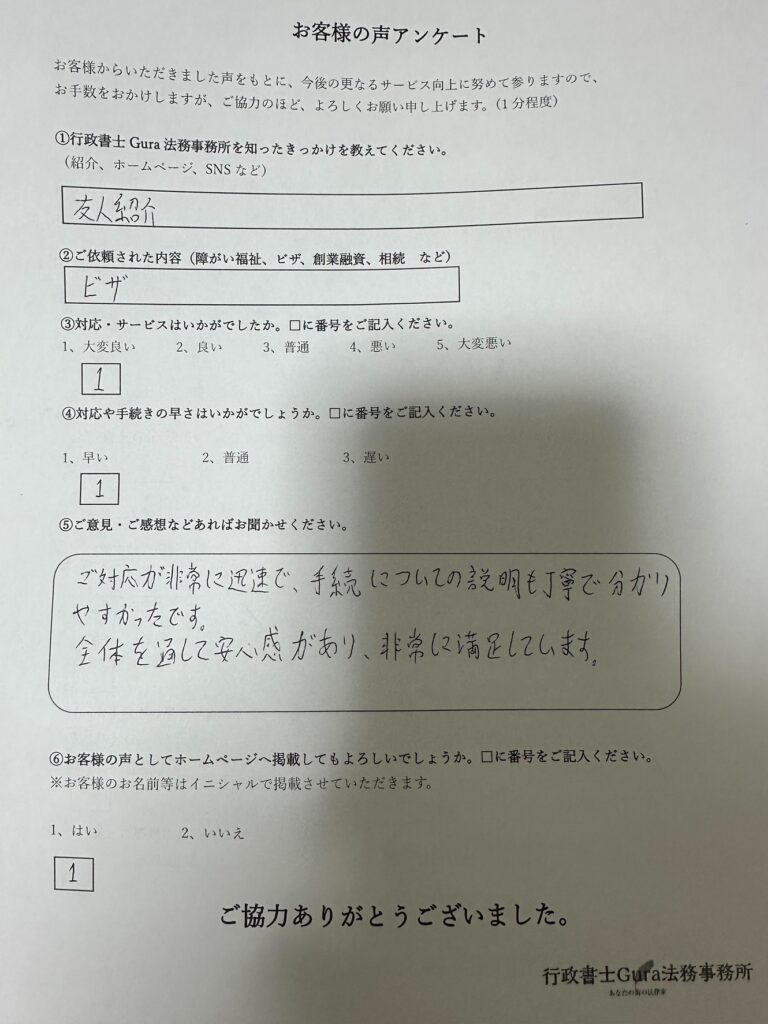 お客様の声アンケート
お客様からいただきました声をもとに、今後の更なるサービス向上に努めて参りますので、
お手数をおかけしますが、ご協力のほど、よろしくお願い申し上げます。（1分程度）
①行政書士Gura法務事務所を知ったきっかけを教えてください。
（紹介、ホームページ、SNSなど）
友人紹介
②ご依頼された内容（障がい福祉、ビザ、創業融資、相続　など）
ビザ
③対応・サービスはいかがでしたか。□に番号をご記入ください。
1、大変良い　2、良い　3、普通　4、悪い　5、大変悪い
1
④対応や手続きの早さはいかがでしょうか。□に番号をご記入ください。
1、早い　2、普通　3、遅い
1
⑤ご意見・ご感想などあればお聞かせください。
ご対応が非常に迅速で、手続についての説明も丁寧で分かり
やすかったです。
全体を通して安心感があり、非常に満足しています。
⑥お客様の声としてホームページへ掲載してもよろしいでしょうか。□に番号をご記入ください。
※お客様のお名前等はイニシャルで掲載させていただきます。
1、はい　2、いいえ
1
ご協力ありがとうございました。
行政書士Gura法務事務所
あなたの街の法律家